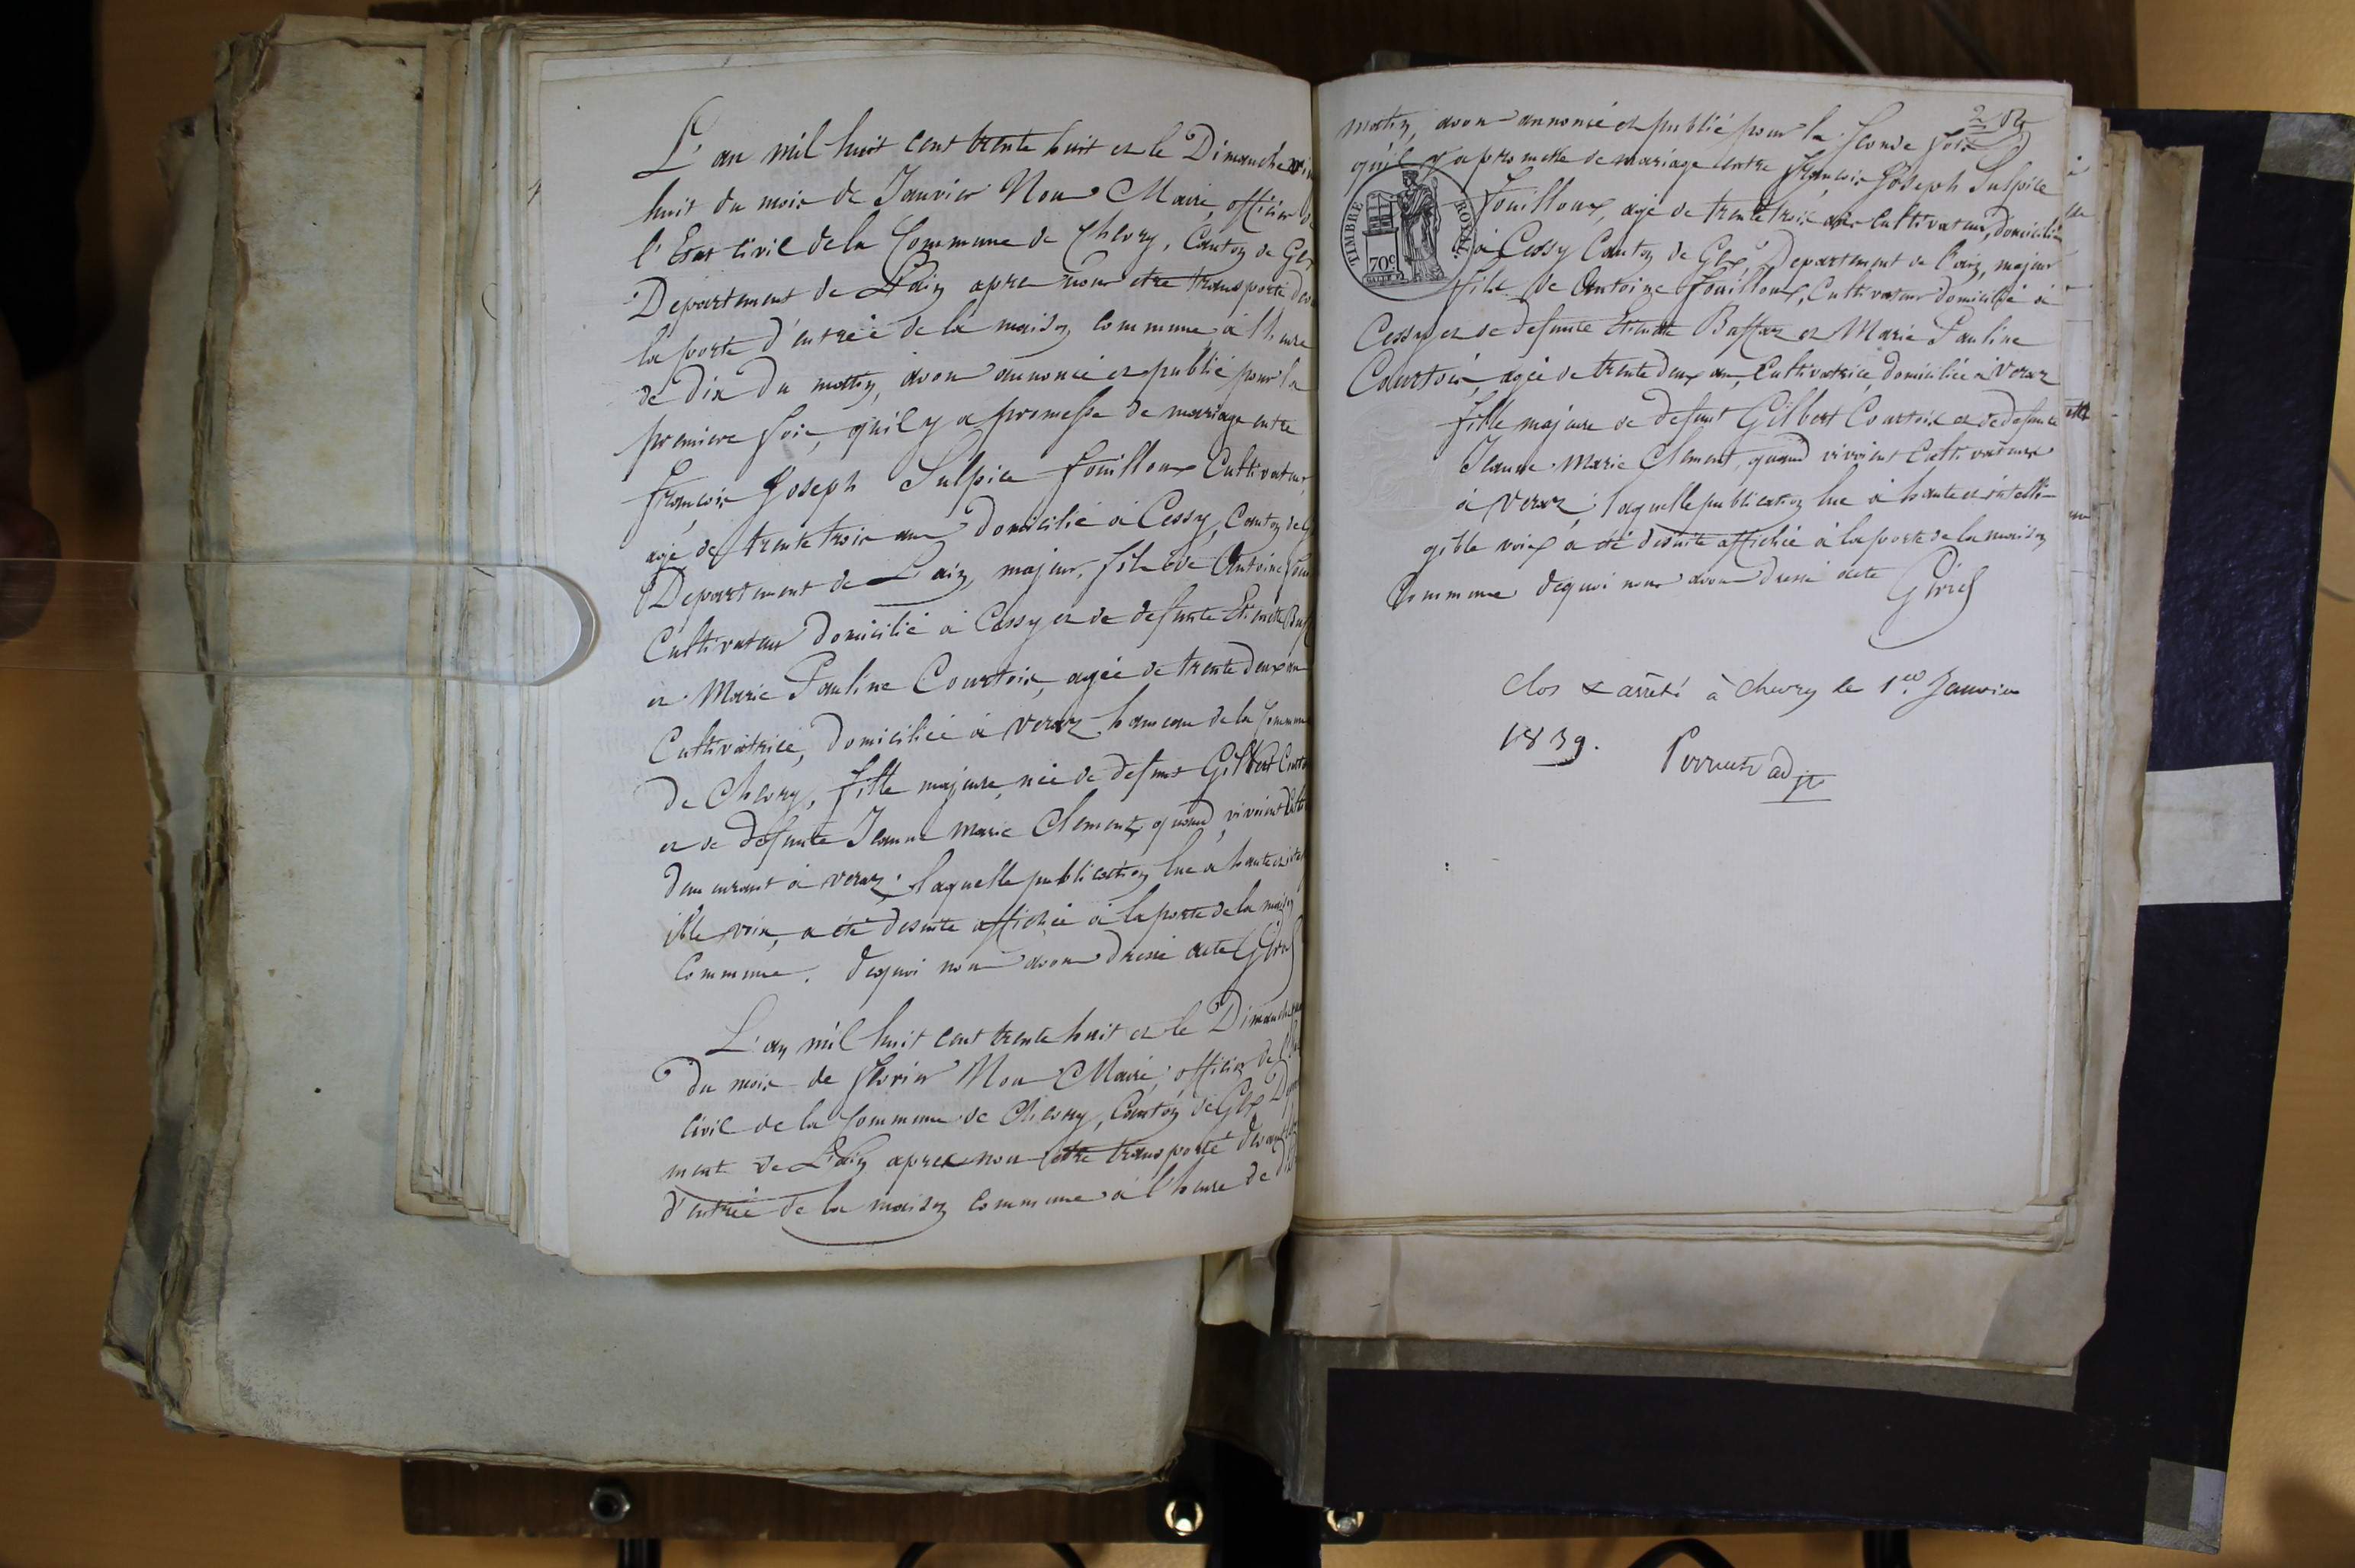 L'an mil huit cent trente huit et le Dimanche
huit du mois de Janvier Nous Maire, officier de
l'Etat Civil de la Commune de Chevry, Canton de Gex
Departement de L'ain apres nous etre transporté
la porte d'entrée de la maison Commune à l'heure
de dix du matin, avons annoncé et publié pour la
premiere fois, qu'il y a promesse de mariage entre
François Joseph Sulpice Fouilloux Cultivateur,
agé de trente trois ans domicilié à Cessy, Canton de
Departement de L'ain, majeur, fils de Antoine
Cultivateur domicilié à Cessy et de defunte
et Marie Pauline Courtois, agée de trente deux ans
Cultivatrice, domiciliée à Veraz hameau de la Commune
de Chevry, fille majeure née de defunt Gilbert
et de defunte Jeanne Marie Clement, quand vivoient
demeurant à Veraz; laquelle publication lue à haute et
ible voix, a été desuite affichée à la porte de la maison
Commune. dequoi nous avons dressé acte
L'an mil huit cent trente huit et le Dimanche
du mois de fevrier Nous Maire, officier de
Civil de la Commune de Chevry, Canton de Gex
ment de L'ain apres nous etre transporté devant
d'entrée de la maison Commune à l'heure de
matin, avons annoncé et publié pour la seconde fois
qu'il y a promesse de mariage entre François Joseph Sulpice
TIMBRE ROYAL 70c
Fouilloux, agé de trente trois ans Cultivateur, domicilié
à Cessy Canton de Gex Departement de l'ain, majeur
fils de Antoine Fouilloux, Cultivateur domicilié à
Cessy et de defunte et Marie Pauline
Courtois, agée de trente deux ans, Cultivatrice, domiciliée à Veraz
fille majeure de defunt Gilbert Courtois et de defunte
Jeanne Marie Clement, quand vivoient Cultivateurs
à Veraz; laquelle publication lue à haute et intelli-
gible voix a été desuite affichée à la porte de la maison
Commune dequoi nous avons dressé acte
Clos & arrêté à Chevry le 1er Janvier
1839.
adjt